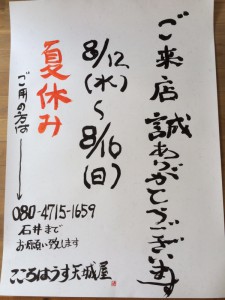 ご来店誠ありがとうございます
8/12
(水)
～
8/16
(日)
夏休み
ご用の方は
080-4715-1659
石井まで
お願い致します
こころはうす天城屋